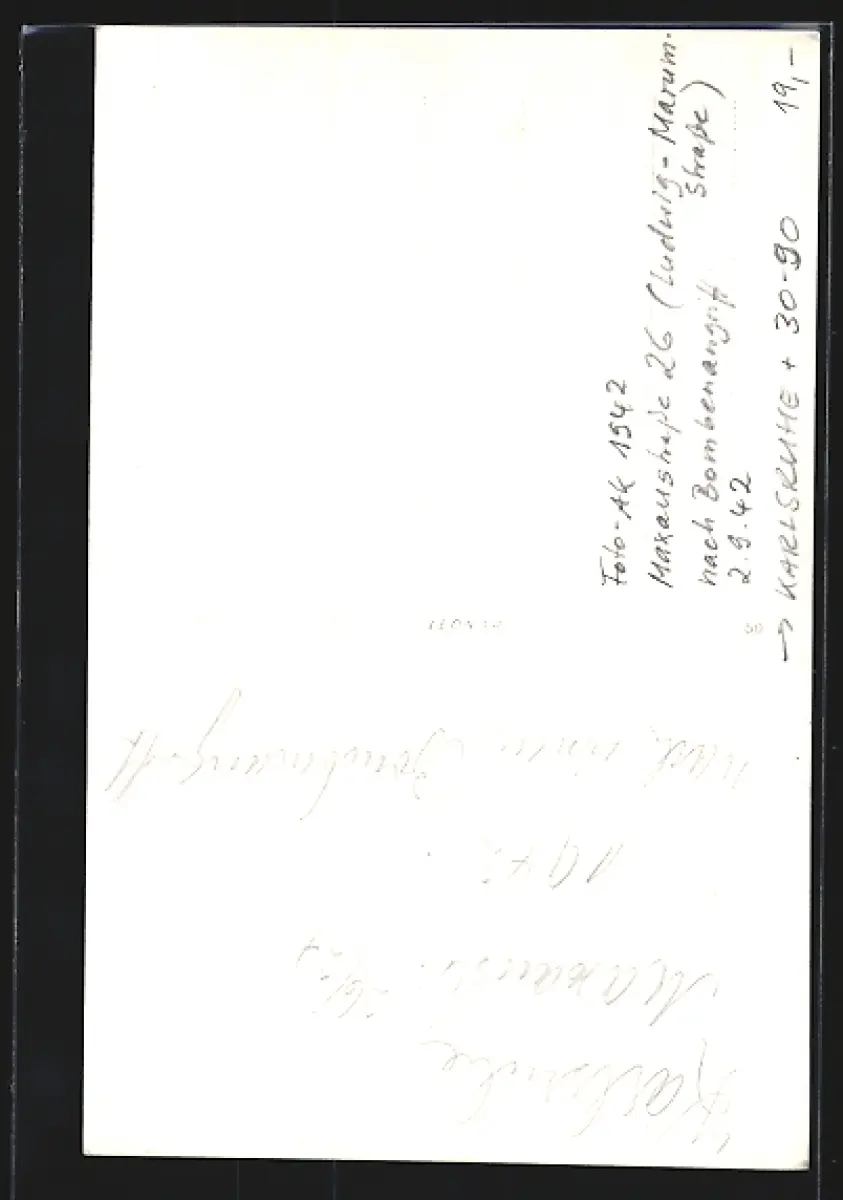 Foto-AK 1942
Maxaustraße 26 (Ludwig-Marum-
straße)
nach Bombenangriff
2.9.42
→ KARLSRUHE + 30-90 19,-
Karlsruhe
Maxaustr.
1942
nach einem Bombenangriff